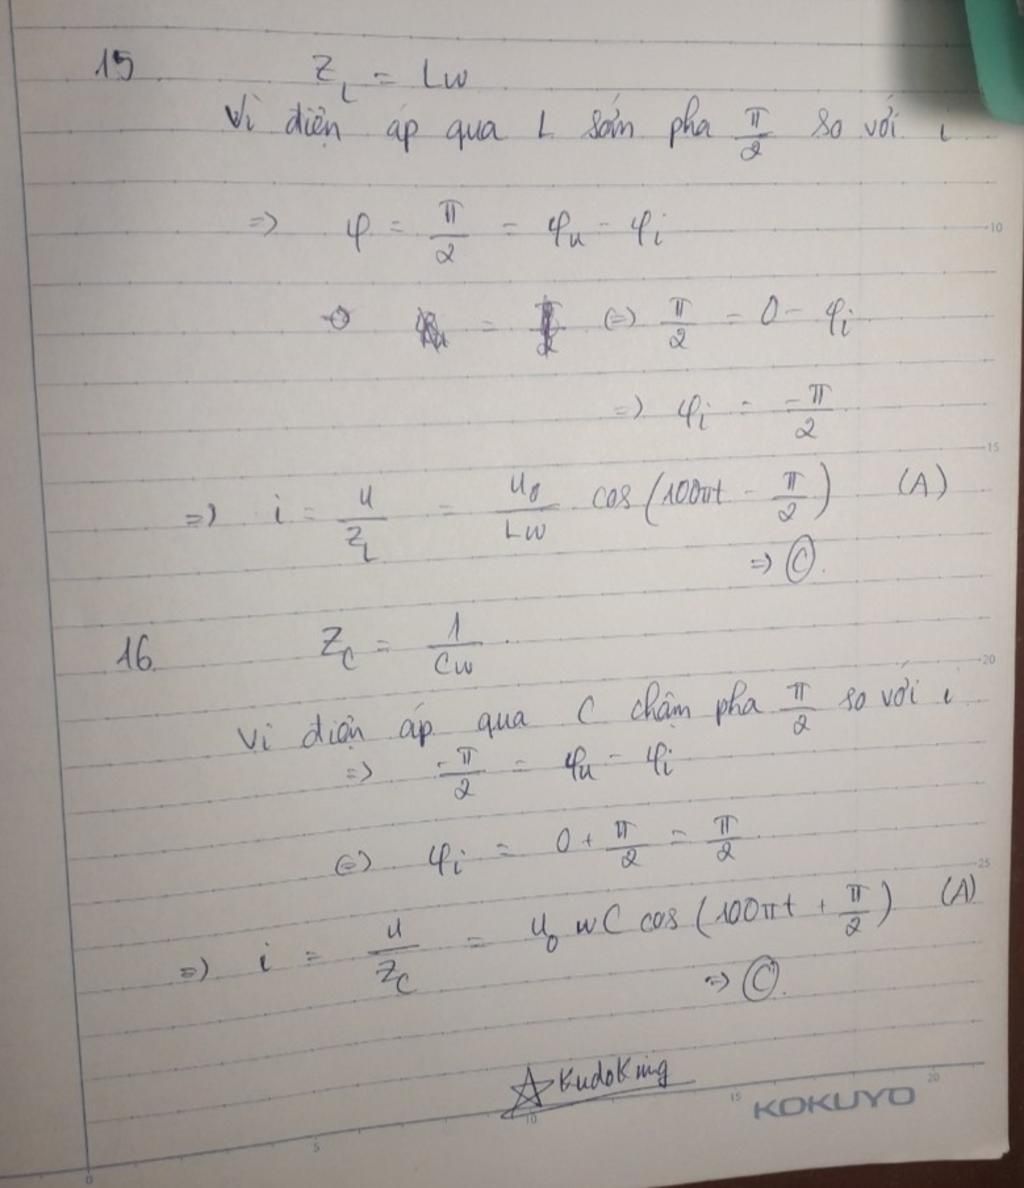 15 Z_L = Lω
Vì điện áp qua L sớm pha π/2 so với i
=> φ = π/2 = φu - φi
(=) π/2 = 0 - φi
=> φi = -π/2
=> i = u/Z_L = U0/Lω cos(100πt - π/2) (A)
=> Ⓒ.
16. Z_C = 1/Cω
Vì điện áp qua C chậm pha π/2 so với i
=> -π/2 = φu - φi
(=) φi = 0 + π/2 = π/2
=> i = u/Z_C = U0 ωC cos(100πt + π/2) (A)
=> Ⓒ.
☆ KudoKing
KOKUYO
10
15
20
25
0
5
10
15
20